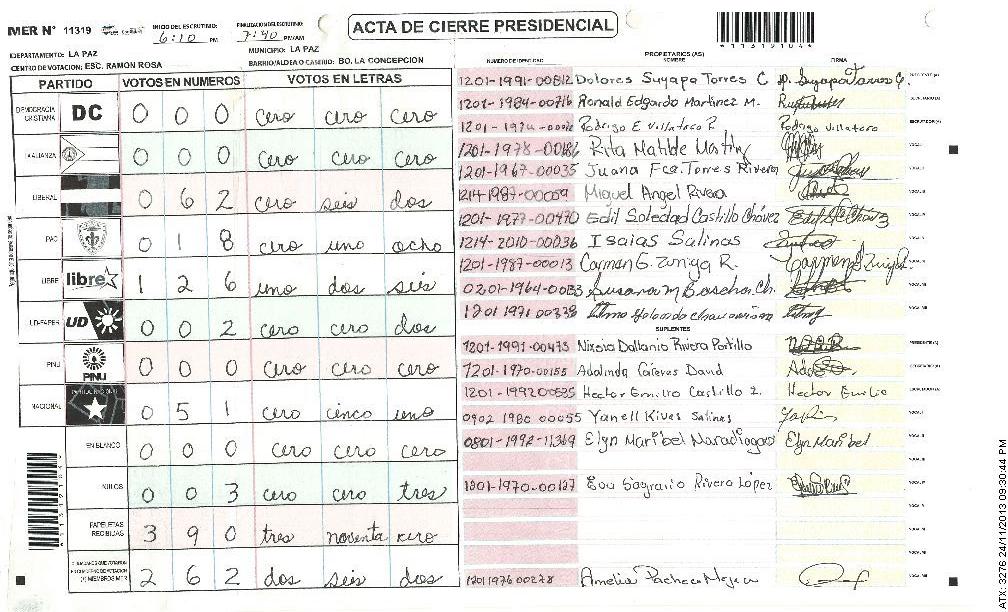 MER N° 11319
INICIO DEL ESCRUTINIO: 6:10 PM
FINALIZACION DEL ESCRUTINIO: 7:40 PM/AM
ACTA DE CIERRE PRESIDENCIAL
*11319104*
DEPARTAMENTO: LA PAZ
MUNICIPIO: LA PAZ
CENTRO DE VOTACION: ESC. RAMON ROSA
BARRIO/ALDEA O CASERIO: BO. LA CONCEPCION
PARTIDO VOTOS EN NUMEROS VOTOS EN LETRAS
DEMOCRACIA CRISTIANA DC 0 0 0 cero cero cero
LA ALIANZA 0 0 0 cero cero cero
LIBERAL 0 6 2 cero seis dos
PAC 0 1 8 cero uno ocho
LIBRE libre 1 2 6 uno dos seis
UD-FAPER UD 0 0 2 cero cero dos
PINU PINU 0 0 0 cero cero cero
NACIONAL 0 5 1 cero cinco uno
EN BLANCO 0 0 0 cero cero cero
NULOS 0 0 3 cero cero tres
PAPELETAS RECIBIDAS 3 9 0 tres noventa xero
2 6 2 dos seis dos
PROPIETARIOS (AS)
NUMERO DE IDENTIDAD NOMBRE FIRMA
1201-1991-00812 Dolores Suyapa Torres C D. Suyapa Torres C.
1201-1984-00716 Ronald Edgardo Martinez M.
1201-1974- Rodrigo E Villatoro R Rodrigo Villatoro
1201-1978-00186 Rita Matilde Martinez
1201-1967-00035 Juana Fca. Torres Rivera
1214-1987-00059 Miguel Angel Rivera
1201-1977-00470 Edil Soledad Castillo Chávez
1214-2010-00036 Isaias Salinas
1201-1987-00013 Carmen G. Zuniga R.
0201-1964- Susana M
1201 1971 00339
SUPLENTES
1201-1991-00475 Rivera Portillo
1201-1970-00155 Adalinda David
1201-1992 00535 Hector Emilio Castillo Z. Hector Emilio
0902 1980 00055 Yanell Salinas
0801-1992-11369 Elyn Maribel Maradiaga Elyn Maribel
1201-1970-00127 Eva Sagrario Rivera López
1201 1976 00278 Amelia Pacheco Mejia
ATX: 3276 24/11/2013 09:30:44 PM